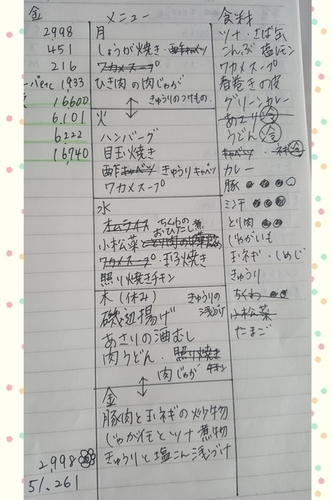 金
2998
451
216
1,933
16600
6,101
6222
16740
2,998
51,261
メニュー
月
しょうが焼き・酢キャベツ
ワカメスープ
ひき肉の肉じゃが
きゅうりのつけもの
火
ハンバーグ
目玉焼き
酢キャベツ きゅうりキャベツ
ワカメスープ
水
オムライス ちくわの
おひたし煮
小松菜
ワカメスープ・玉子焼き
照り焼きチキン
木(休み) きゅうりの
浅づけ
磯辺揚げ
あさりの酒むし
肉うどん・照り焼き
チキン
肉じゃが
金
豚肉と玉ネギの炒め物
じゃが芋とツナ煮物
きゅうりと塩こん浅づけ
食料
ツナ・さば缶
こんぶ 塩レモン
ワカメスープ
春巻きの皮
グリーンカレー
あさり 冷
うどん 冷
キャベツ
カレー
豚
ミンチ
とり肉
じゃがいも
玉ネギ・しめじ
きゅうり
ちくわ
小松菜
たまご